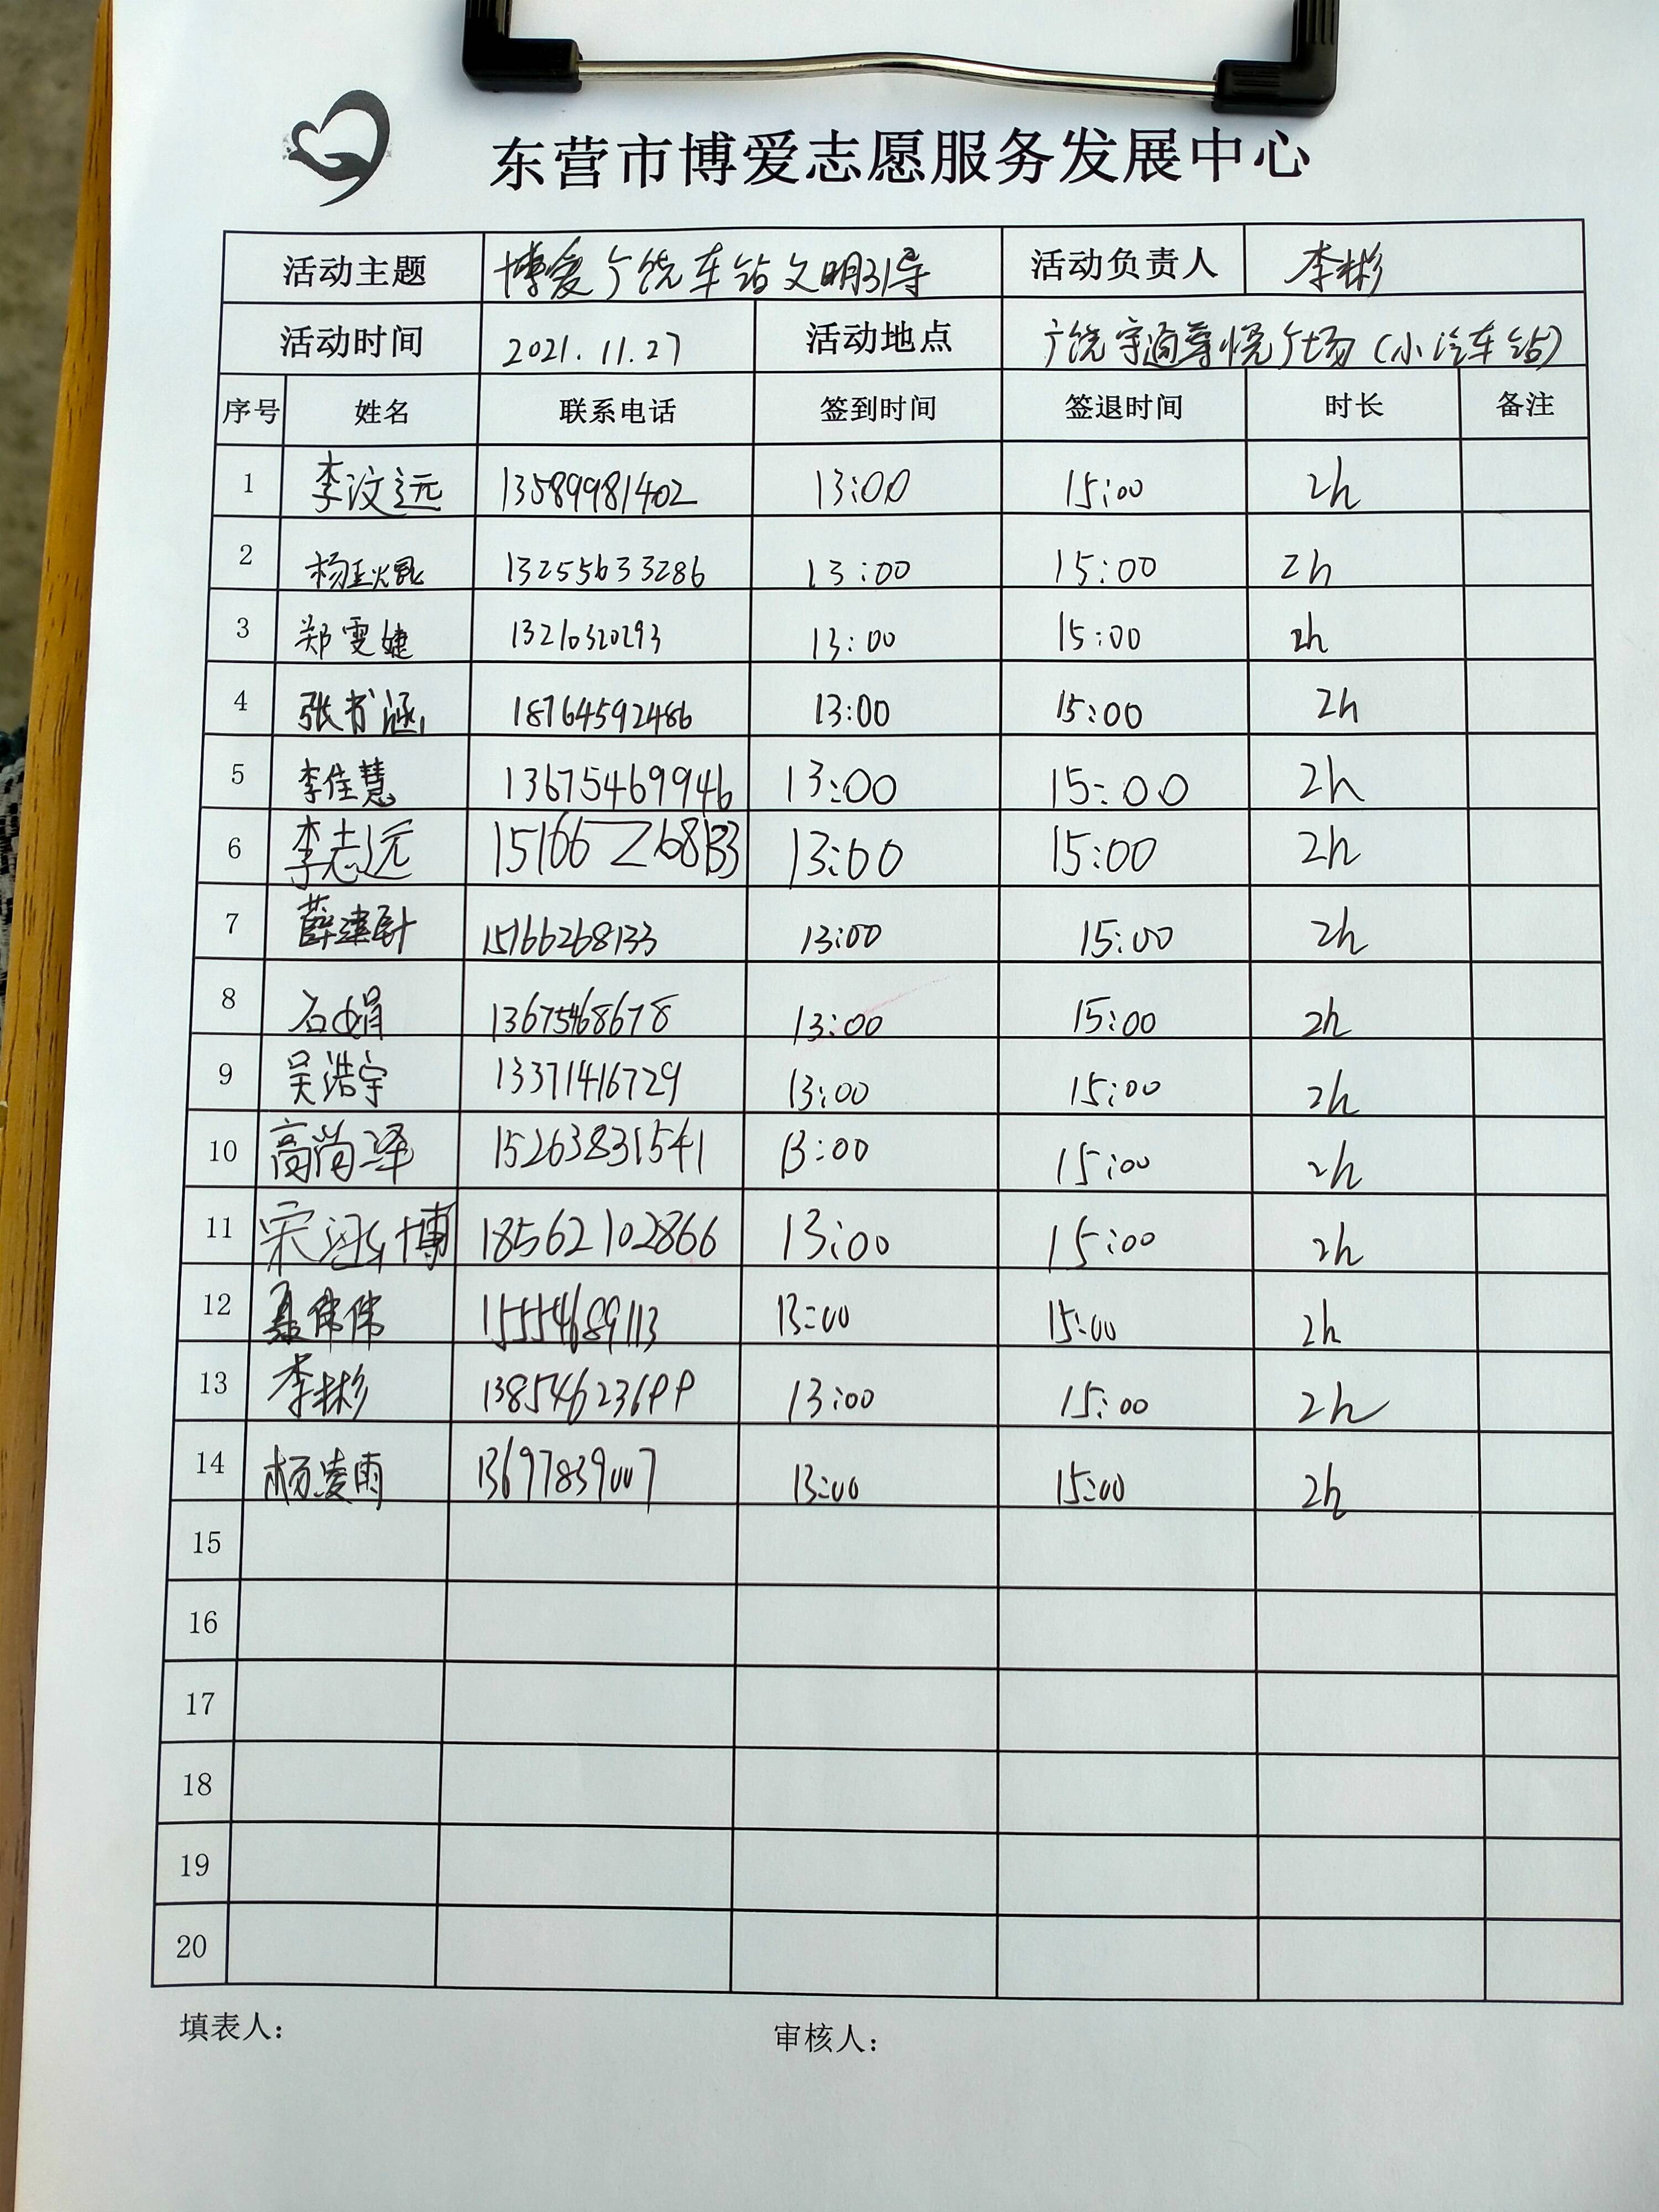 东营市博爱志愿服务发展中心
活动主题 博爱广饶车站文明引导 活动负责人 李彬
活动时间 2021.11.27 活动地点 广饶宇通尊悦广场（小汽车站）
序号 姓名 联系电话 签到时间 签退时间 时长 备注
1 李汶远 13589981402 13:00 15:00 2h
2 13255633286 13:00 15:00 2h
3 郑雯婕 13210320293 13:00 15:00 2h
4 张书涵 18764592486 13:00 15:00 2h
5 李佳慧 13675469946 13:00 15:00 2h
6 李志远 15166268133 13:00 15:00 2h
7 15166268133 13:00 15:00 2h
8 石娟 13675468678 13:00 15:00 2h
9 吴浩宇 13371416729 13:00 15:00 2h
10 高尚泽 15263831541 13:00 15:00 2h
11 18562102866 13:00 15:00 2h
12 聂伟伟 15554689113 13:00 15:00 2h
13 李彬 13:00 15:00 2h
14 杨凌雨 13697839007 13:00 15:00 2h
15
16
17
18
19
20
填表人： 审核人：